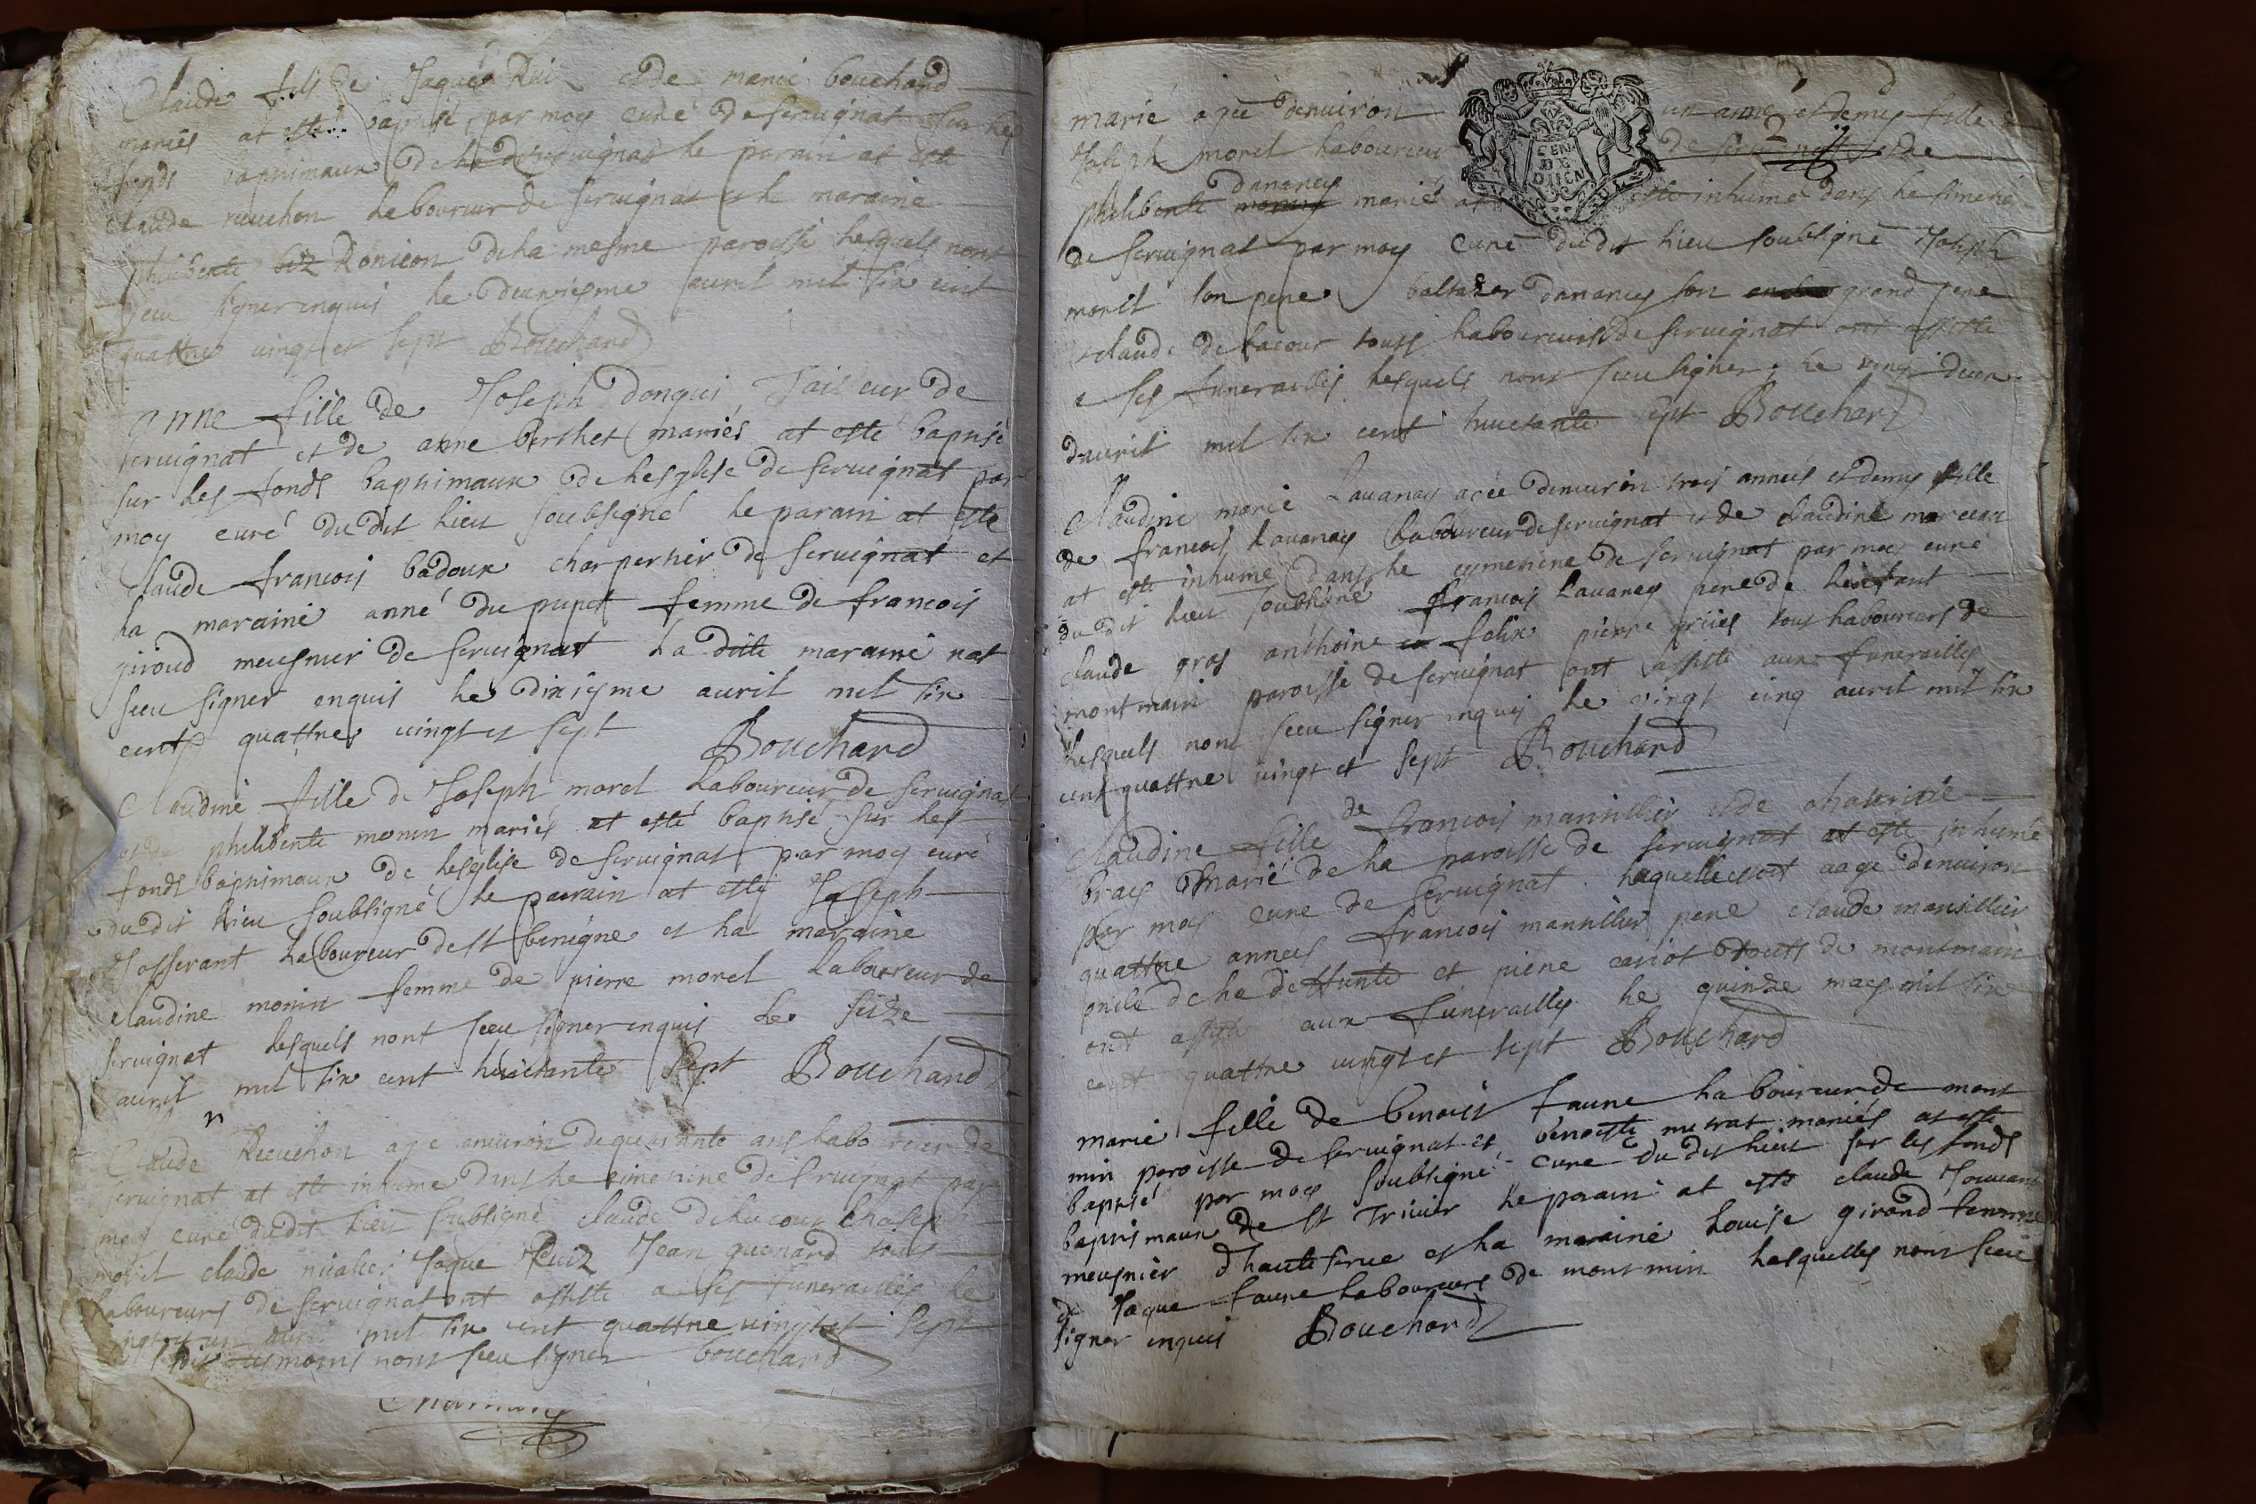 Claude fils de Jaques Ruiz et de marie bouchard
mariés at esté baptisé par moy curé de seruignat sur les
fonds baptimaux de la de seruignat le parain at esté
claude reuchon laboureur de seruignat et la maraine
philiberte Ronicon de la mesme paroisse lesquels nont
sceu signer enquis le deuxiesme auril mil six cent
quattre vingt et sept Bouchard
anne fille de Joseph donqui Taiseur de
seruignat et de anne berthet mariés at esté baptisé
sur les fonds baptimaux de lesglise de seruignat par
moy curé du dit lieu soubsigné le parain at esté
Claude francois badoux charpentier de seruignat et
la maraine anné du pupet femme de francois
giroud meusnier de seruignat la ditte maraine nat
sceu signer enquis le dixiesme auril mil six
cents quattre vingt et sept Bouchard
Claudine fille de Joseph morel laboureur de seruignat
et de philiberte monin mariés at esté baptisé sur les
fonds baptimaux de lesglise de seruignat par moy curé
du dit lieu soubsigné le parain at esté Joseph
Josserant laboureur de st benigne et la maraine
claudine monin femme de pierre morel laboureur de
seruignat lesquels nont sceu signer enquis le seize
auril mil six cent huictante sept Bouchard
Claude Reuchon agé enuiron de quarante ans laboureur de
seruignat at esté inhumé dans le cimetiere de seruignat par
moy curé du dit lieu soubsigné claude de lacour Joseph
morel claude Jaque Ruiz Jean guenard tous
laboureurs de seruignat ont assisté a ses funerailles le
vingt et un auril mil six cent quattre vingt et sept
nont sceu signer bouchard
marie agée denuiron un anné et demy fille de
Joseph morel laboureur de seruignat et de
2
dananey
philiberte mariés at esté inhumé dans le simetie
de seruignat par moy curé du dit lieu soubsigné Joseph
morel son pere baltazar dananey son grand pere
et claude de lacour touts laboureurs de seruignat ont assisté
a ses funerailles lesquels nont sceu signer le vingt deux
dauril mil six cent huictante sept Bouchard
Claudine marie Lauaney agée denuiron trois annees et demy fille
de francois Lauaney laboureur de seruignat et de claudine morceau
at esté inhumé dans le cymetiere de seruignat par moy curé
du dit lieu soubsigné francois Lauaney pere de lenfant
claude gros anthoine felix pierre tous laboureurs de
montmain paroisse de seruignat ont assisté aux funerailles
lesquels nont sceu signer enquis le vingt cinq auril mil six
cent quattre vingt et sept Bouchard
Claudine fille de francois manillier et de
bray marié de la paroisse de seruignat at esté inhumé
par moy curé de seruignat laquelle estoit aage denuiron
quattre annees francois manillier pere claude manillier
oncle de la deffunte et piere cariot touts de montmain
ont assisté aux funerailles le quinze may mil six
cent quattre vingt et sept Bouchard
marie fille de benoist faune laboureur de mont
min paroisse de seruignat et benoiste mutrat mariés at esté
baptisé par moy soubsigné curé du dit lieu sur les fonds
baptismaux de st Triuier le parain at esté claude
meusnier dhauteserue et la maraine Louise giroud femme
de Jaque faune laboureurs de montmin lesquelles nont sceu
signer enquis Bouchard